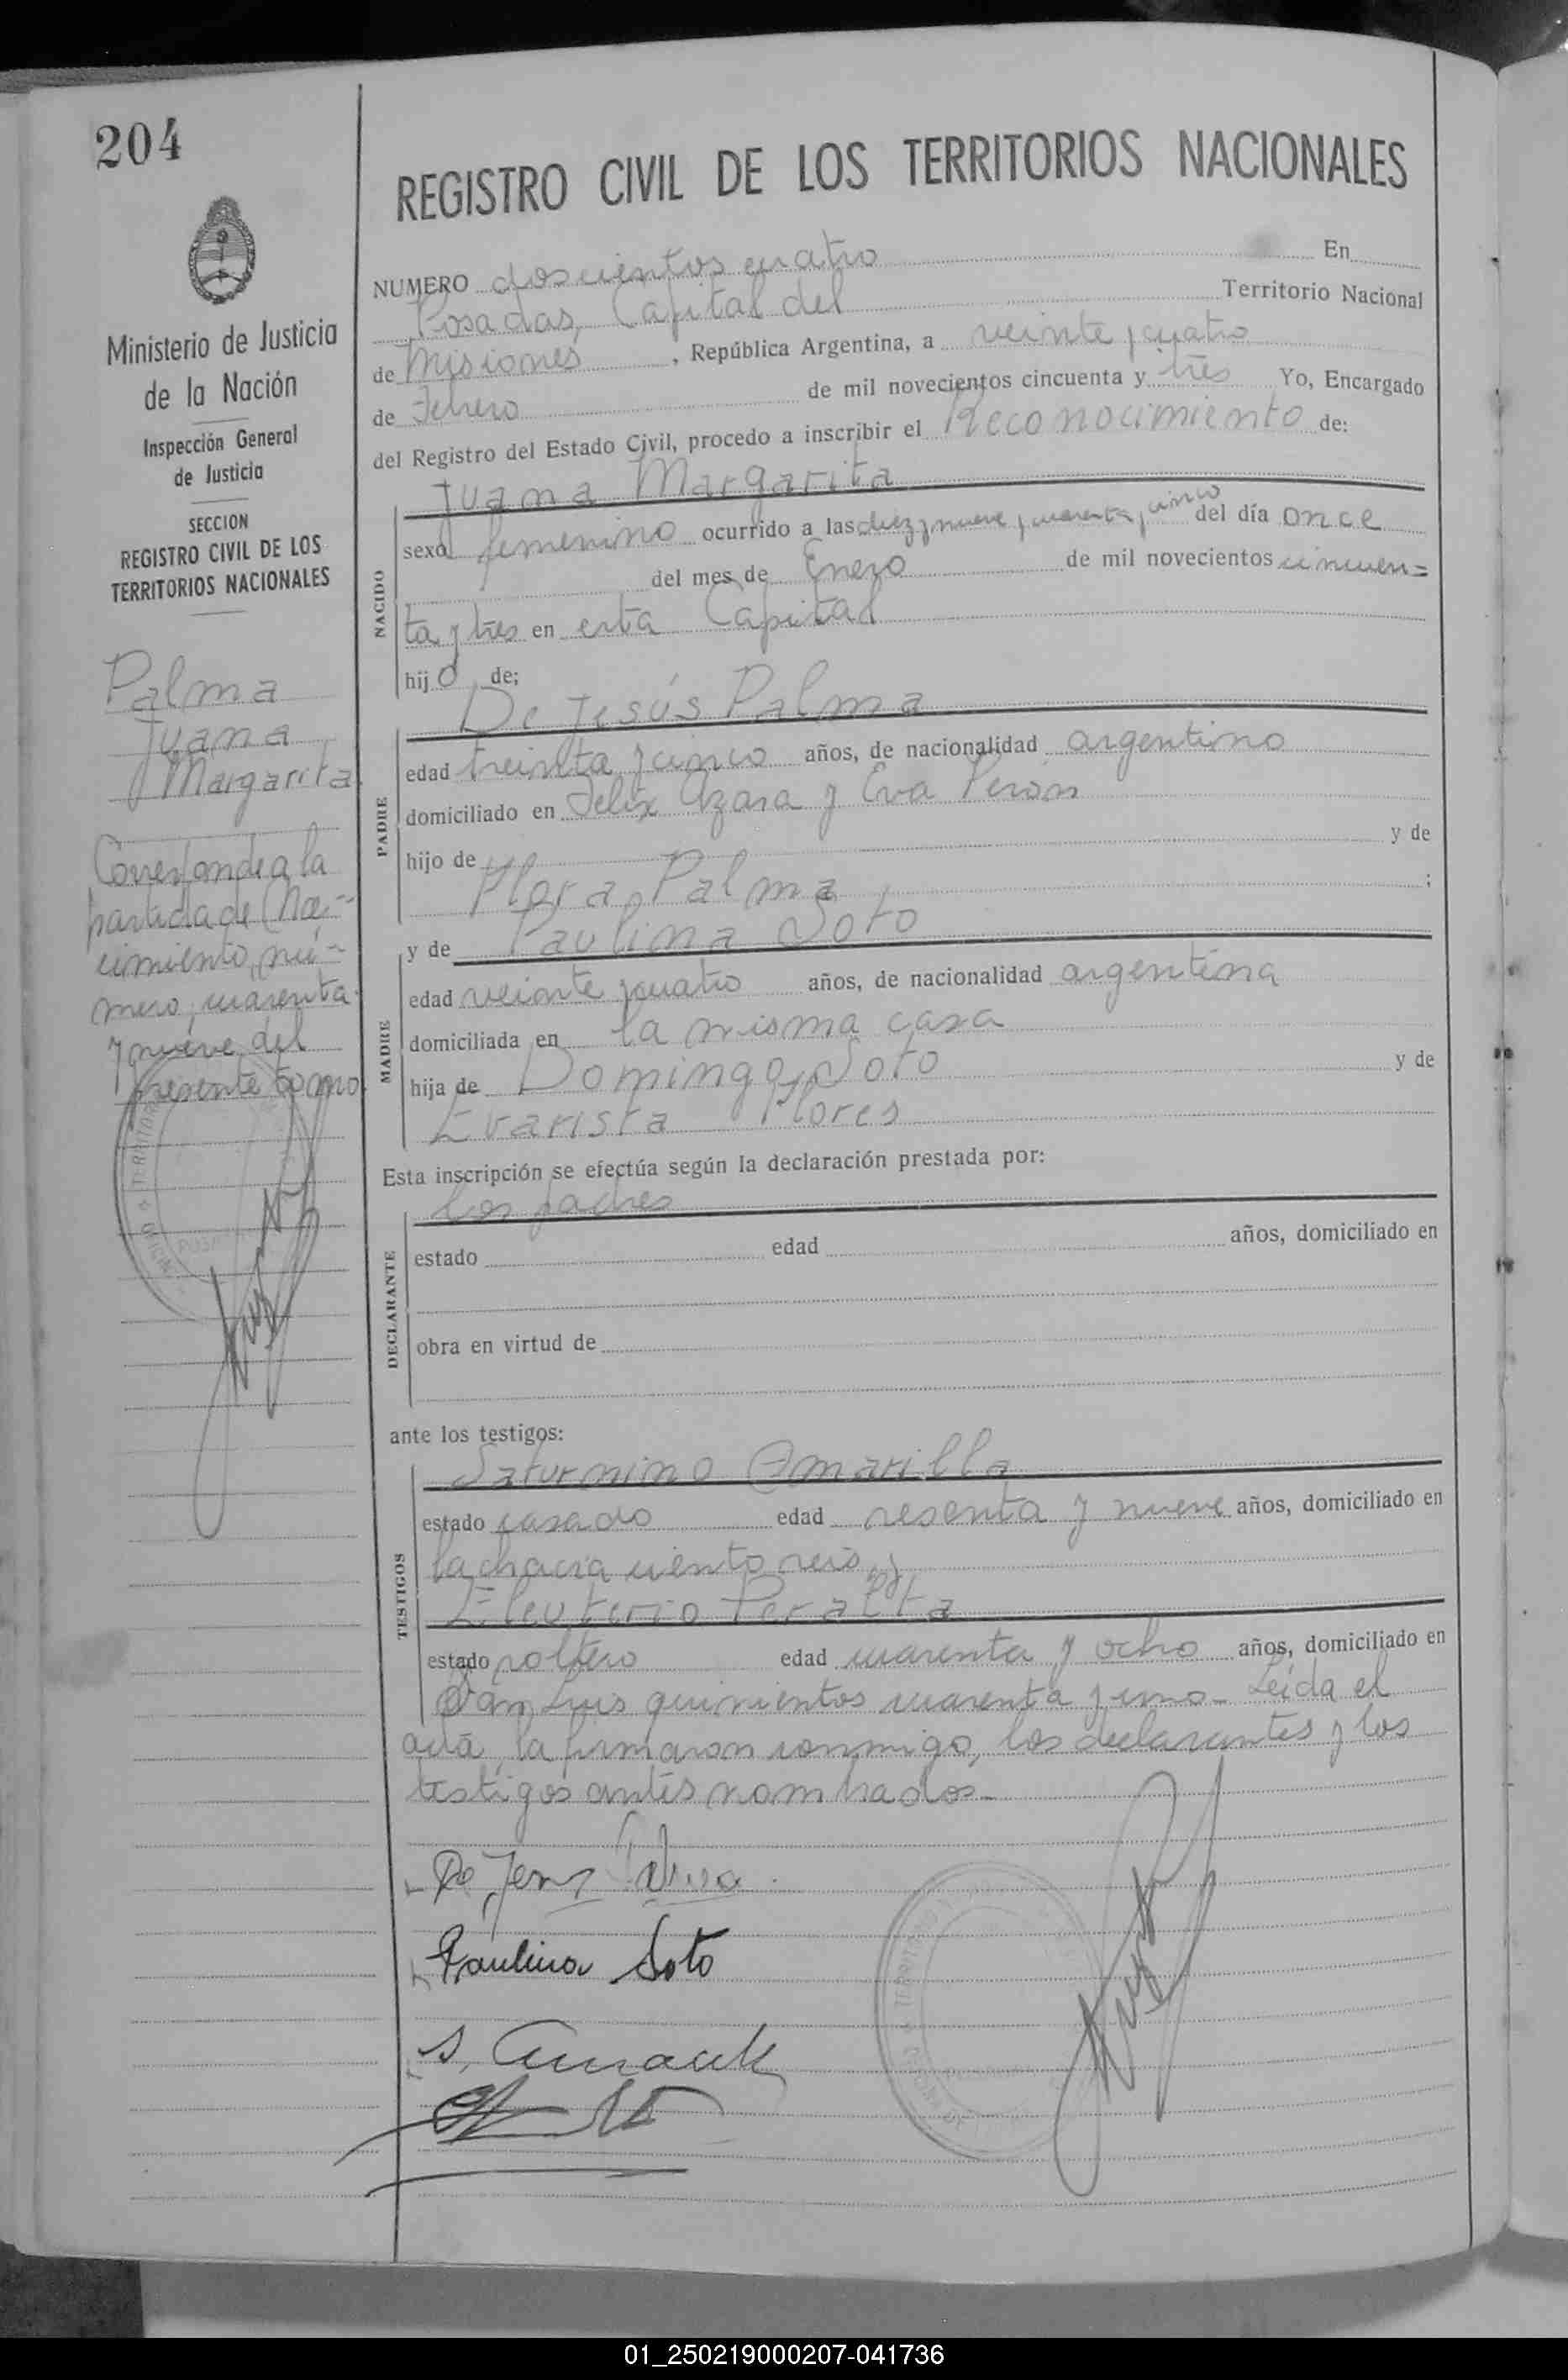 204
REGISTRO CIVIL DE LOS TERRITORIOS NACIONALES
Ministerio de Justicia
de la Nación
Inspección General
de Justicia
SECCION
REGISTRO CIVIL DE LOS
TERRITORIOS NACIONALES
Palma
Juana
Margarita
Corresponde a la
partida de Na-
cimiento, nú-
mero, cuarenta
y nueve del
presente tomo
NUMERO doscientos cuatro En
Posadas, Capital del Territorio Nacional
de Misiones, República Argentina, a veinte y cuatro
de Febrero de mil novecientos cincuenta y tres Yo, Encargado
del Registro del Estado Civil, procedo a inscribir el Reconocimiento de:
Juana Margarita
NACIDO
sexo femenino ocurrido a las diez y nueve y cuarenta y cinco del día once
del mes de Enero de mil novecientos cincuen=
ta y tres en esta Capital
hijo de;
De Jesús Palma
PADRE
edad treinta y cinco años, de nacionalidad argentino
domiciliado en Felix Azara y Eva Perón
hijo de y de
Flora Palma ;
y de Paulina Soto
MADRE
edad veinte y cuatro años, de nacionalidad argentina
domiciliada en la misma casa
hija de Domingo Soto y de
Evarista Flores
Esta inscripción se efectúa según la declaración prestada por:
los padres
DECLARANTE
estado edad años, domiciliado en
obra en virtud de
ante los testigos:
Saturnino Amarilla
TESTIGOS
estado casado edad sesenta y nueve años, domiciliado en
la chacra ciento seis, y
Eleuterio Peralta
estado soltero edad cuarenta y ocho años, domiciliado en
San Luis quinientos cuarenta y uno_ Leída el
acta, la firmaron conmigo, los declarantes y los
testigos antes nombrados_
De Jesus
Paulina Soto
01_250219000207-041736